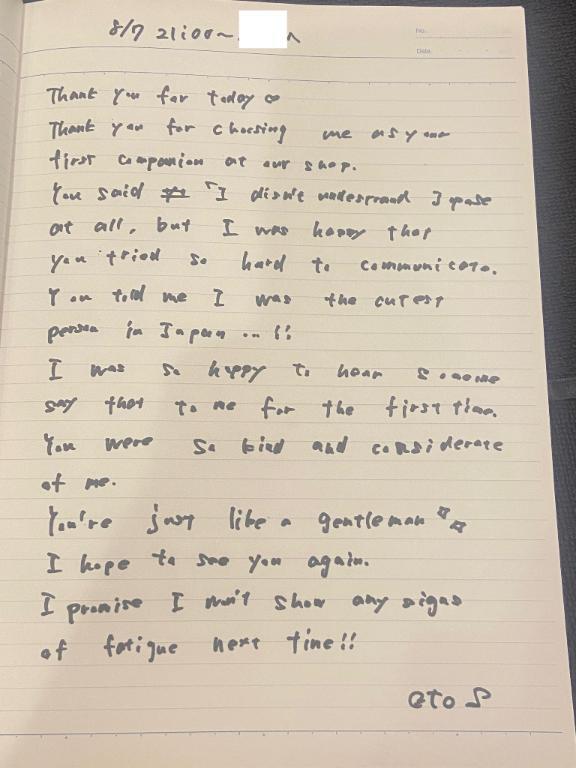 8/7 21:00~
No.
Date
Thank you for today ♡
Thank you for choosing me as your
first companion at our shop.
You said 「I disn't undespraud I
at all, but I was happy that
you tried so hard to communicate.
You told me I was the cutest
person in Japan ... !!
I was so happy to hear someone
say that to me for the first time.
You were so kind and considerate
of me.
You're just like a gentleman ☆☆
I hope to see you again.
I promise I won't show any signs
of fatigue next time!!